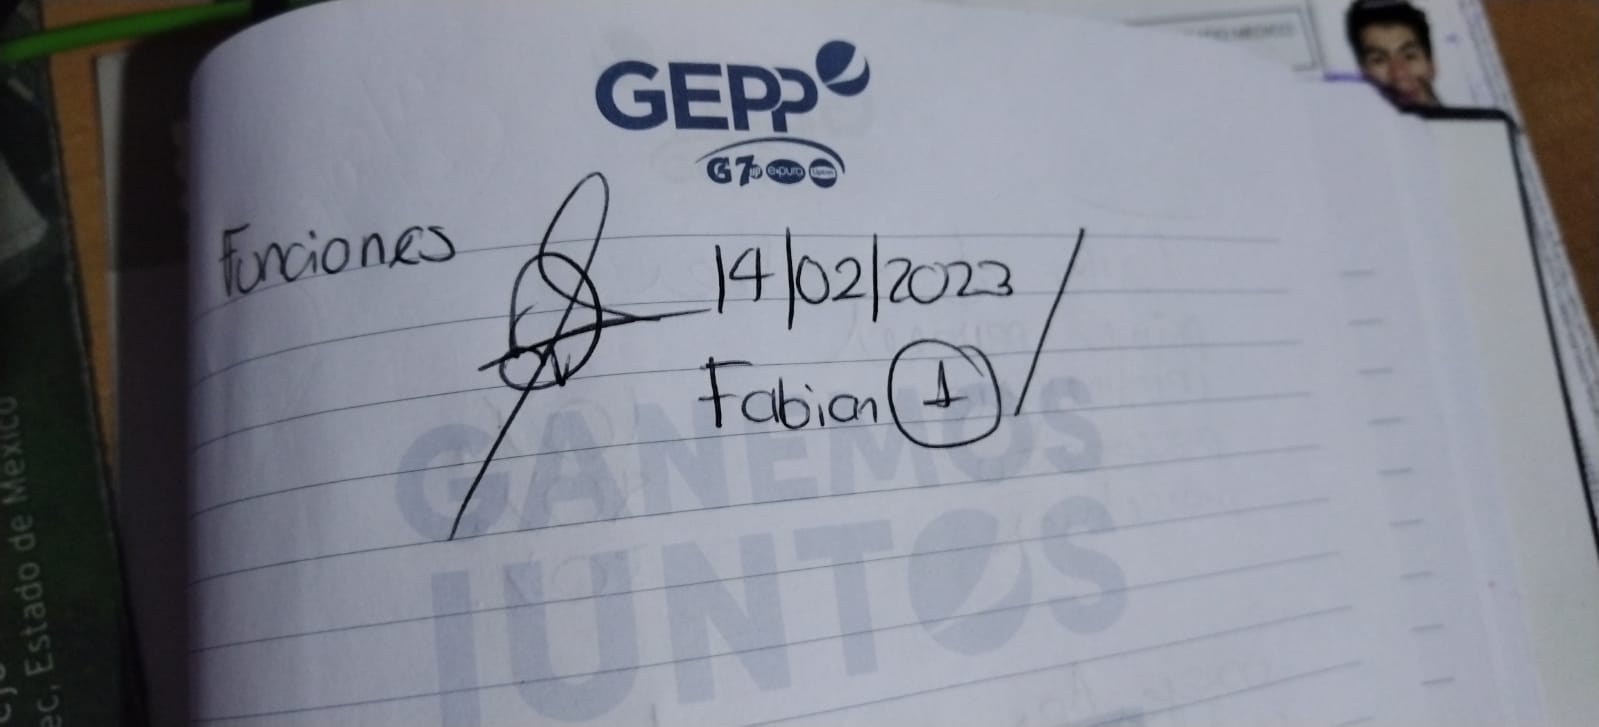 GEPP
G 7up epura Lipton
Funciones
14/02/2023
Fabian 1
GANEMOS
JUNTOS
ec, Estado de México